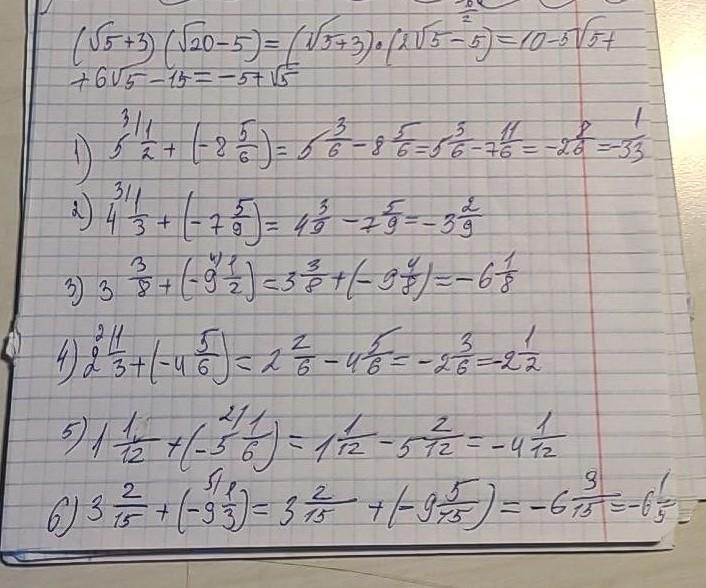 (√5+3)(√20-5)=(√5+3)·(2√5-5)=10-5√5+
+6√5-15=-5+√5
1) 5 3/1/2 + (-8 5/6) = 5 3/6 - 8 5/6 = 5 3/6 - 7 11/6 = -2 8/6 = -3 1/3
2) 4 3/1/3 + (-7 5/9) = 4 3/9 - 7 5/9 = -3 2/9
3) 3 3/8 + (-9 4/1/2) = 3 3/8 + (-9 4/8) = -6 1/8
4) 2 2/1/3 + (-4 5/6) = 2 2/6 - 4 5/6 = -2 3/6 = -2 1/2
5) 1 1/12 + (-5 2/1/6) = 1 1/12 - 5 2/12 = -4 1/12
6) 3 2/15 + (-9 5/1/3) = 3 2/15 + (-9 5/15) = -6 3/15 = -6 1/5